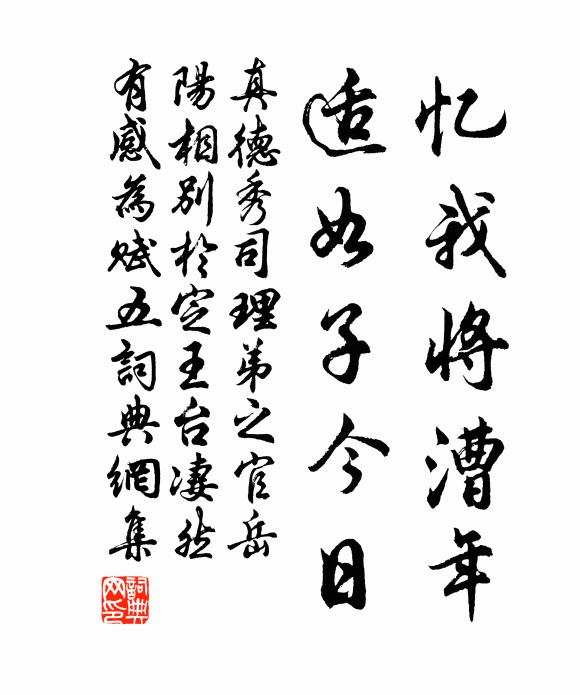 忆我将漕年
适如子今日
真德秀司理弟之官岳
陽相别於定王台凄然
有感為赋五詞典網集
詞典網印